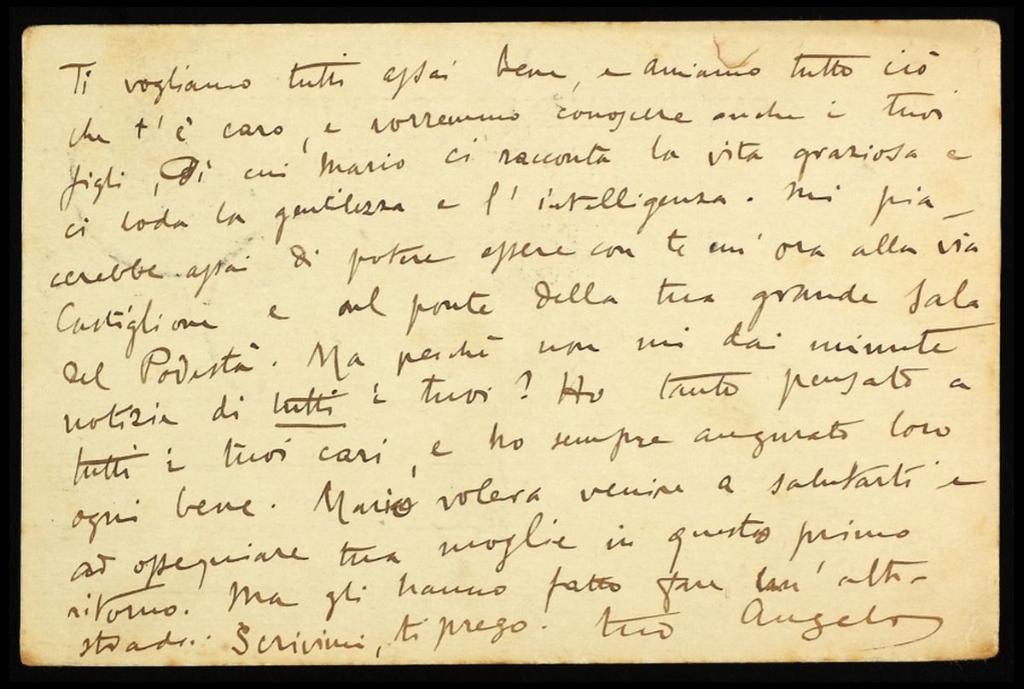 Ti vogliamo tutti assai bene, e amiamo tutto ciò
che t'è caro, e vorremmo conoscere anche i tuoi
figli, di cui Mario ci racconta la vita graziosa e
ci loda la gentilezza e l'intelligenza. Mi pia-
cerebbe assai di potere essere con te un'ora alla via
Castiglione e sul ponte della tua grande Sala
del Podestà. Ma perché non mi dai minute
notizie di tutti i tuoi? Ho tanto pensato a
tutti i tuoi cari, e ho sempre augurato loro
ogni bene. Mario voleva venire a salutarti e
ad ossequiare tua moglie in questo primo
ritorno. Ma gli hanno fatto fare un'altra
strada. Scrivimi, ti prego. tuo Angelo